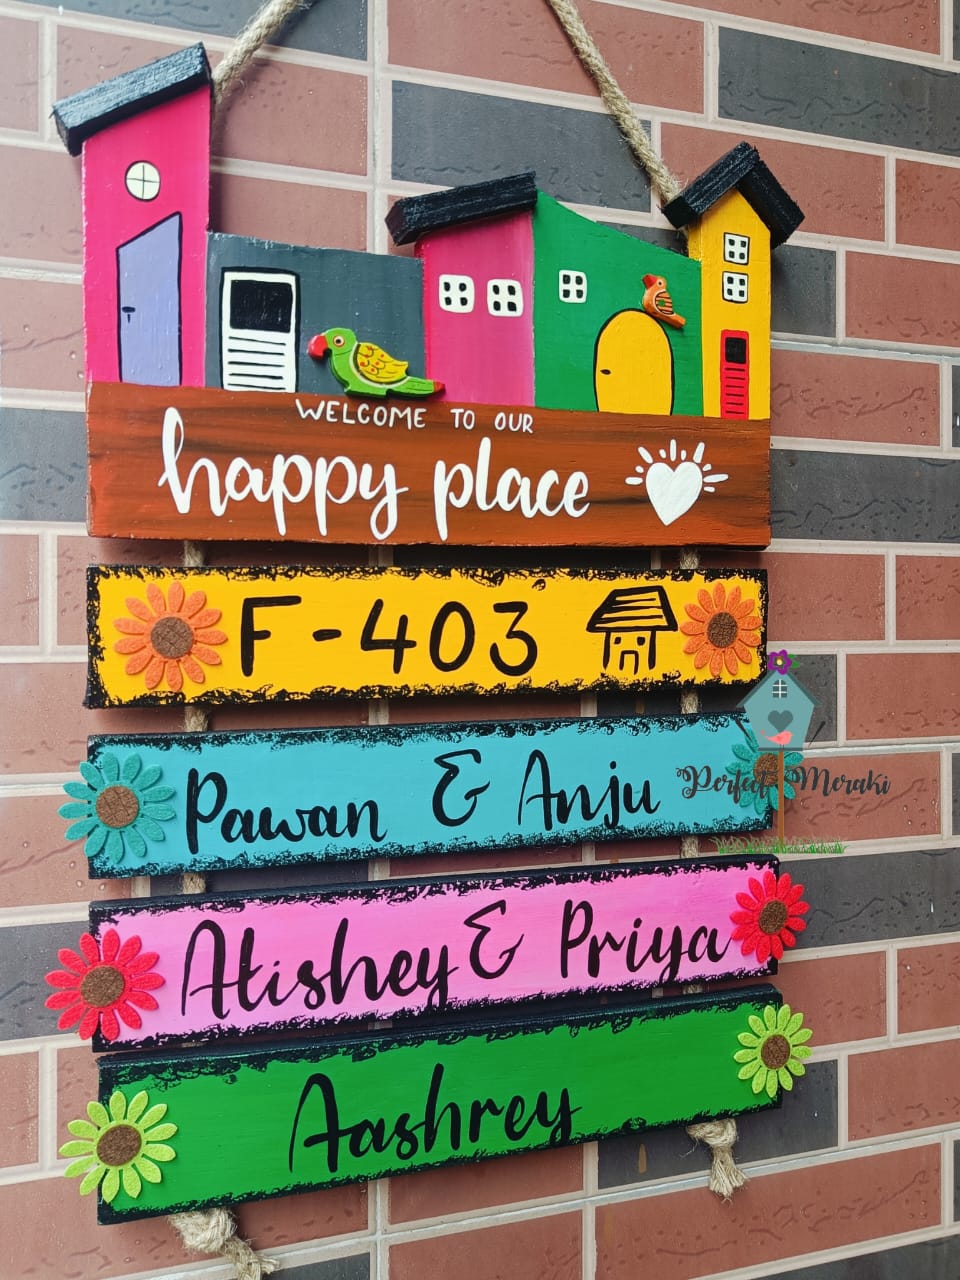 WELCOME TO OUR
happy place
F-403
Pawan & Anju
Perfect Meraki
Atishey & Priya
Aashrey